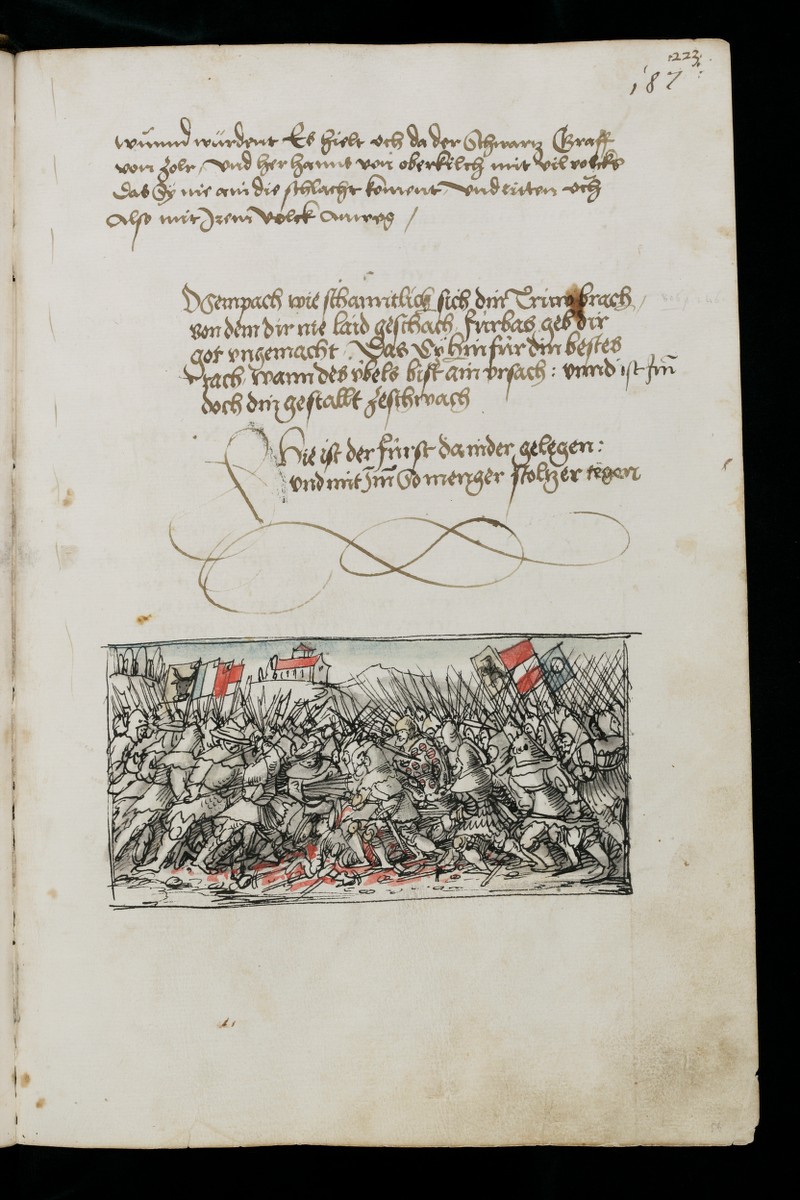 223.
187
wund würdent Es hielt och da der Schwartz Graff
von Zolr, Und her hanns von oberkilch mit vil volcks
Das Sy nie an die schlacht koment Und ritten och
Also mit Irem Volck Anweg /
Sempach wie schanntlich sich din Trüw brach /
von dem dir nie laid geschach, fürbas geb dir
got ungemacht, Das Sy hinfür din bestes
, wann des übels bist ain ursach: unnd ist Im̄
doch din gestallt
Hie ist der fürst da nider gelegen:
und mit Im̄ So menger stoltzer tegen